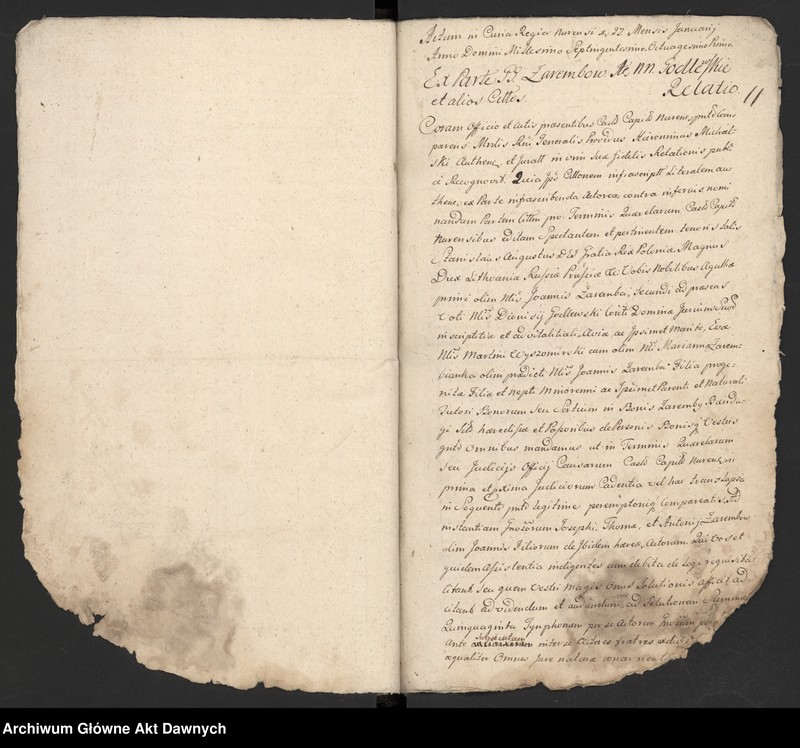 Actum in Curia Regia Nurensi d. 27 Mensis Januarij
Anno Domini Millesimo Septingentesimo Octuagesimo Primo
Ex Parte GG. Zarembow Ac NN. Godlewskie
et alios Cittos. Relatio.
11
Coram Officio et Actis præsentibus Castr Capit Nurens, psnlr Com
parens Mnlis Rni Generalis Providus Hieronimus Michal
ski Authen, et Juratt in vim suæ fidelis Relationis publ
ce Recognovit. Quia Ipse Cittonem infrascriptt Literalem au
then, ex Parte infrascribenda Actorea contra inferius nomi
nandam Partem Cittm pro Terminis Querelarum Castr Capit
Nurensibus editam Spectantem et pertinentem tenoris talis
Stanislaus Augustus Dei Gratia Rex Poloniæ Magnus
Dux Lithvaniæ Russiæ Prussiæ &c Vobis Nobilibus Agatha
primi olim Nlis Joannis Zaremba, secundi ad præsens
Voti Nlis Dionisij Godlewski Conti Dominæ Jurium suor
inscriptitiæ et advitalitiali, Aviæ, ac Ipsimet Marito, Evæ
Nlis Martini Wyszomirski cum olim Nli Marianna Zarem
bianka olim prædicti Nlis Joannis Zaremba Filia proge
nita Filiæ et Nepti Minorenni ac Ipsimet Parenti et Naturali
Tutori Bonorum seu Sortium in Bonis Zaremby Bindu
gi Sitt hæredissæ et Possoribus de Personis Bonisq Vestris
gnlr Omnibus mandamus ut in Terminis Querelarum
seu Judicijs Officij Causarum Castr Capit Nurens, in
prima et pxima Judiciorum Cadentia vel hac translapsa
in Sequenti psnlr legitime peremptorieq Compareatis, Ad
instantiam Gnosorum Josephi, Thomæ, et Antonij Zarembow
olim Joannis Filiorum de Ibidem hæred, Actorum. Qui Vos et
quidem Assistentia indigentes cum debita de Lege requisita
Citant seu quem Vestri magis Onus Solutionis afficit, ad
citant ad videndum et audiendum, ad Solutionem Summæ
Quinquaginta Tynphonum per se Actorum
Ante inter se Actores fratres
æqualiter Omnes Jure naturæ